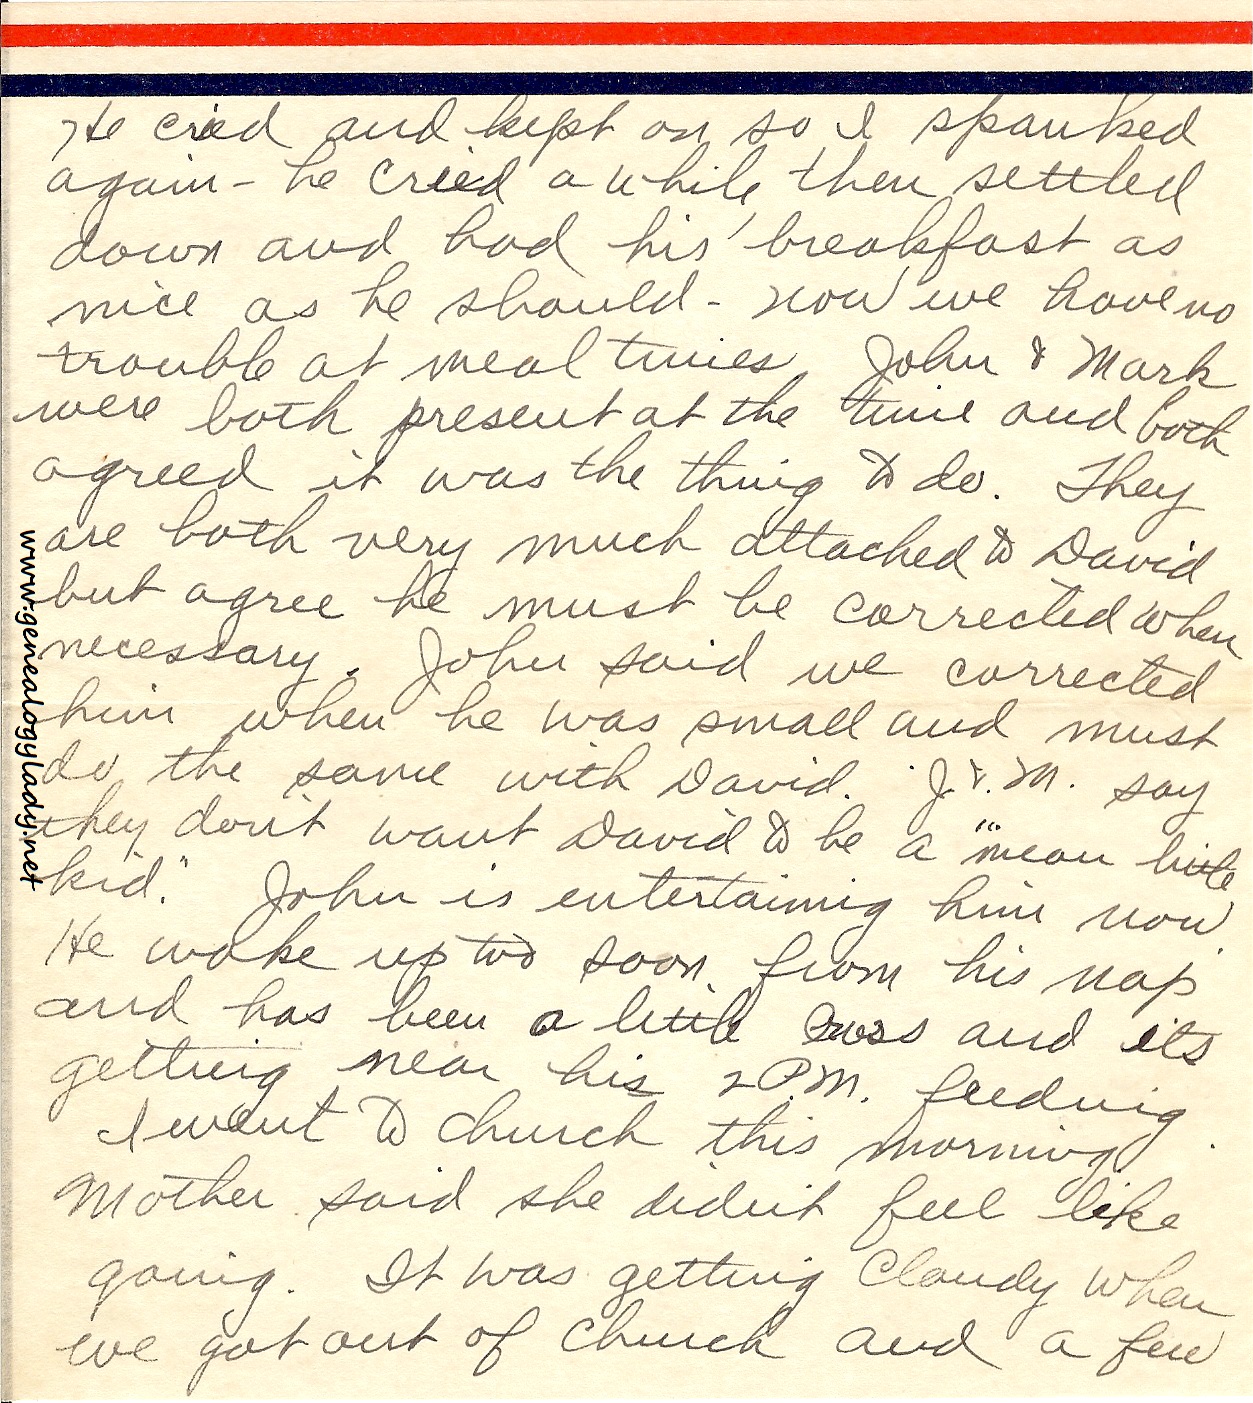 He cried and kept on so I spanked
again - he cried a while then settled
down and had his breakfast as
nice as he should - now we have no
trouble at meal times. John & Mark
were both present at the time and both
agreed it was the thing to do. They
are both very much attached to David
but agree he must be corrected when
necessary. John said we corrected
him when he was small and must
do the same with David. J. & M. say
they don't want David to be a "mean little
kid." John is entertaining him now.
He woke up too soon from his nap
and has been a little cross and its
getting near his 2 P.M. feeding.
I went to church this morning
Mother said she didn't feel like
going. It was getting cloudy when
we got out of church and a few
www.genealogylady.net